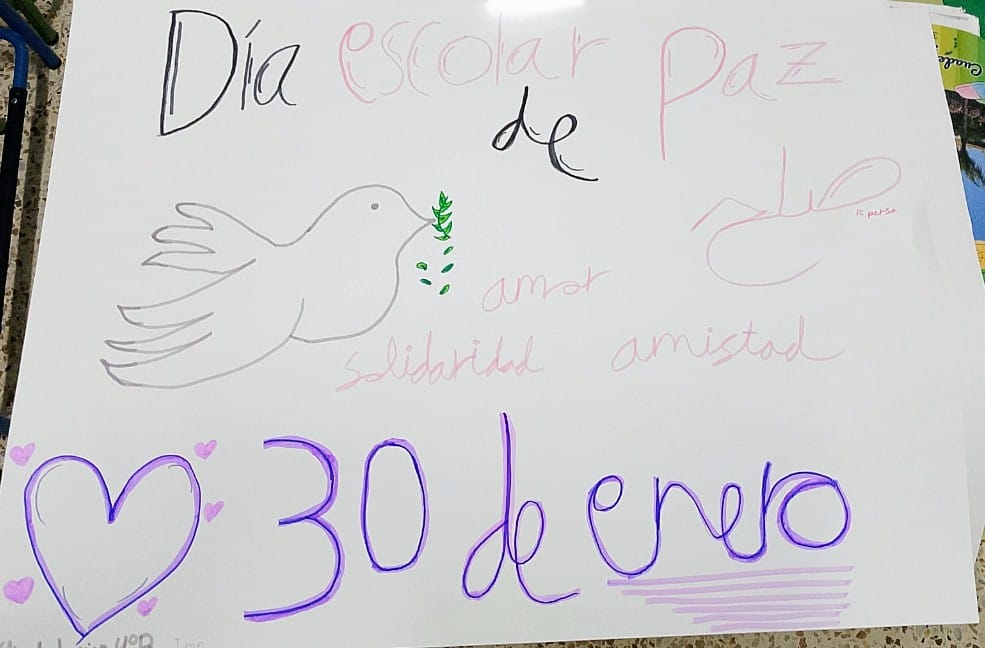 Día escolar de Paz
صلح
amor
solidaridad amistad
30 de enero